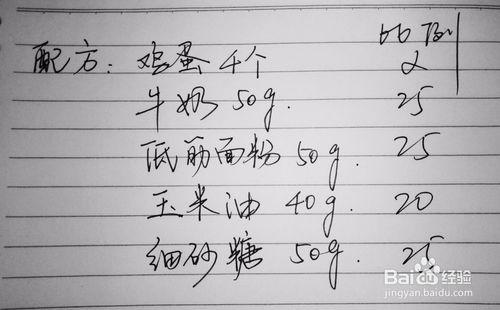 比例
配方：鸡蛋 4个 2
牛奶 50g. 25
低筋面粉 50g. 25
玉米油 40g. 20
细砂糖 50g. 25
Baidu经验
jingyan.baidu.com